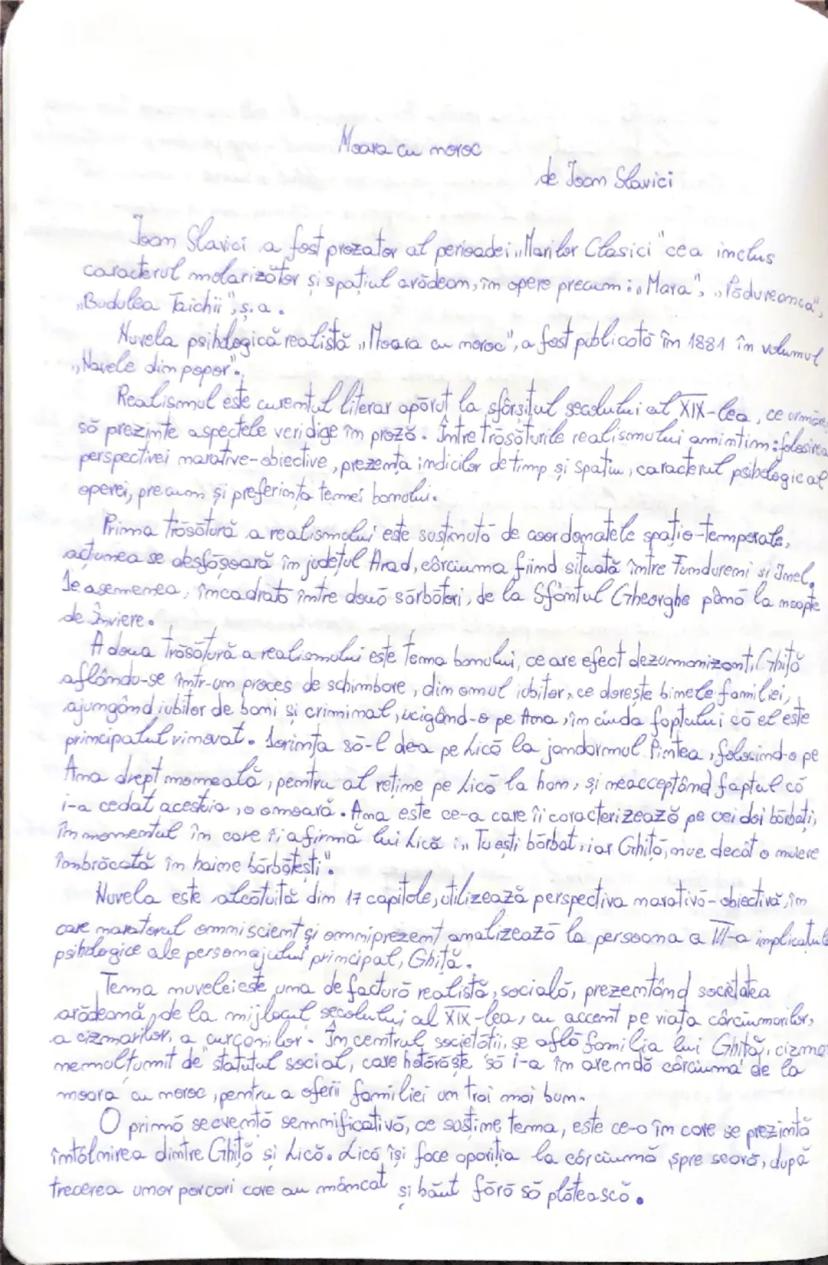 Moara cu noroc
de Ioan Slavici
Ioan Slavici a fost prozator al perioadei „Marilor Clasici" cea inclus
caracterul molarizător și spațiul arădean, în opere precum: „Mara", „Pădureanca",
„Budulea Taichii", ș.a.
Nuvela psihologică realistă „Moara cu noroc", a fost publicată în 1881 în volumul
„Navele din popor".
Realismul este curentul literar apărut la sfârșitul secolului al XIX-lea, ce
să prezinte aspectele veridige în proză. Între trăsăturile realismului amintim: folosirea
perspectivei narative-obiective, prezența indicilor de timp și spațiu, caracterul psihologic al
operei, precum și preferința temei banului.
Prima trăsătură a realismului este susținută de coordonatele spațio-temporale,
acțiunea se desfășoară în județul Arad, cârciuma fiind situată între Fundureni și Inel.
De asemenea, încadrată între două sărbători, de la Sfântul Gheorghe până la noapte
de Înviere.
A doua trăsătură a realismului este tema banului, ce are efect dezumanizant, Ghiță
aflându-se într-un proces de schimbare, din omul iubitor, ce dorește binele familiei,
ajungând iubitor de bani și criminal, ucigând-o pe Ana, în ciuda faptului că el este
principalul vinovat. Dorința să-l dea pe Lică la jandarmul Pintea, folosind-o pe
Ana drept momeală, pentru al reține pe Lică la han, și neacceptând faptul că
i-a cedat acestuia, o omoară. Ana este ce-a care îi caracterizează pe cei doi bărbați,
în momentul în care îi afirmă lui Lică: „Tu ești bărbat, iar Ghiță, nu-e decât o muiere
îmbrăcată în haine bărbătești".
Nuvela este alcătuită din 17 capitole, utilizează perspectiva narativă-obiectivă, în
care naratorul omniscient și omniprezent analizează la persoana a III-a
psihologice ale personajului principal, Ghiță.
Tema nuvelei este una de factură realistă, socială, prezentând societatea
arădeană, de la mijlocul secolului al XIX-lea, cu accent pe viața cârciumarilor,
a cizmarilor, a curșonilor. În centrul societății, se află familia lui Ghiță,
nemulțumit de statutul social, care hotărăște să i-a în arendă cârciuma de la
moara cu noroc, pentru a oferii familiei un trai mai bun.
O primă secvență semnificativă, ce susține tema, este ce-o în care se prezintă
întâlnirea dintre Ghiță și Lică. Lică își face apariția la cârciumă spre seară, după
trecerea unor porcari care au mâncat și băut fără să plătească.